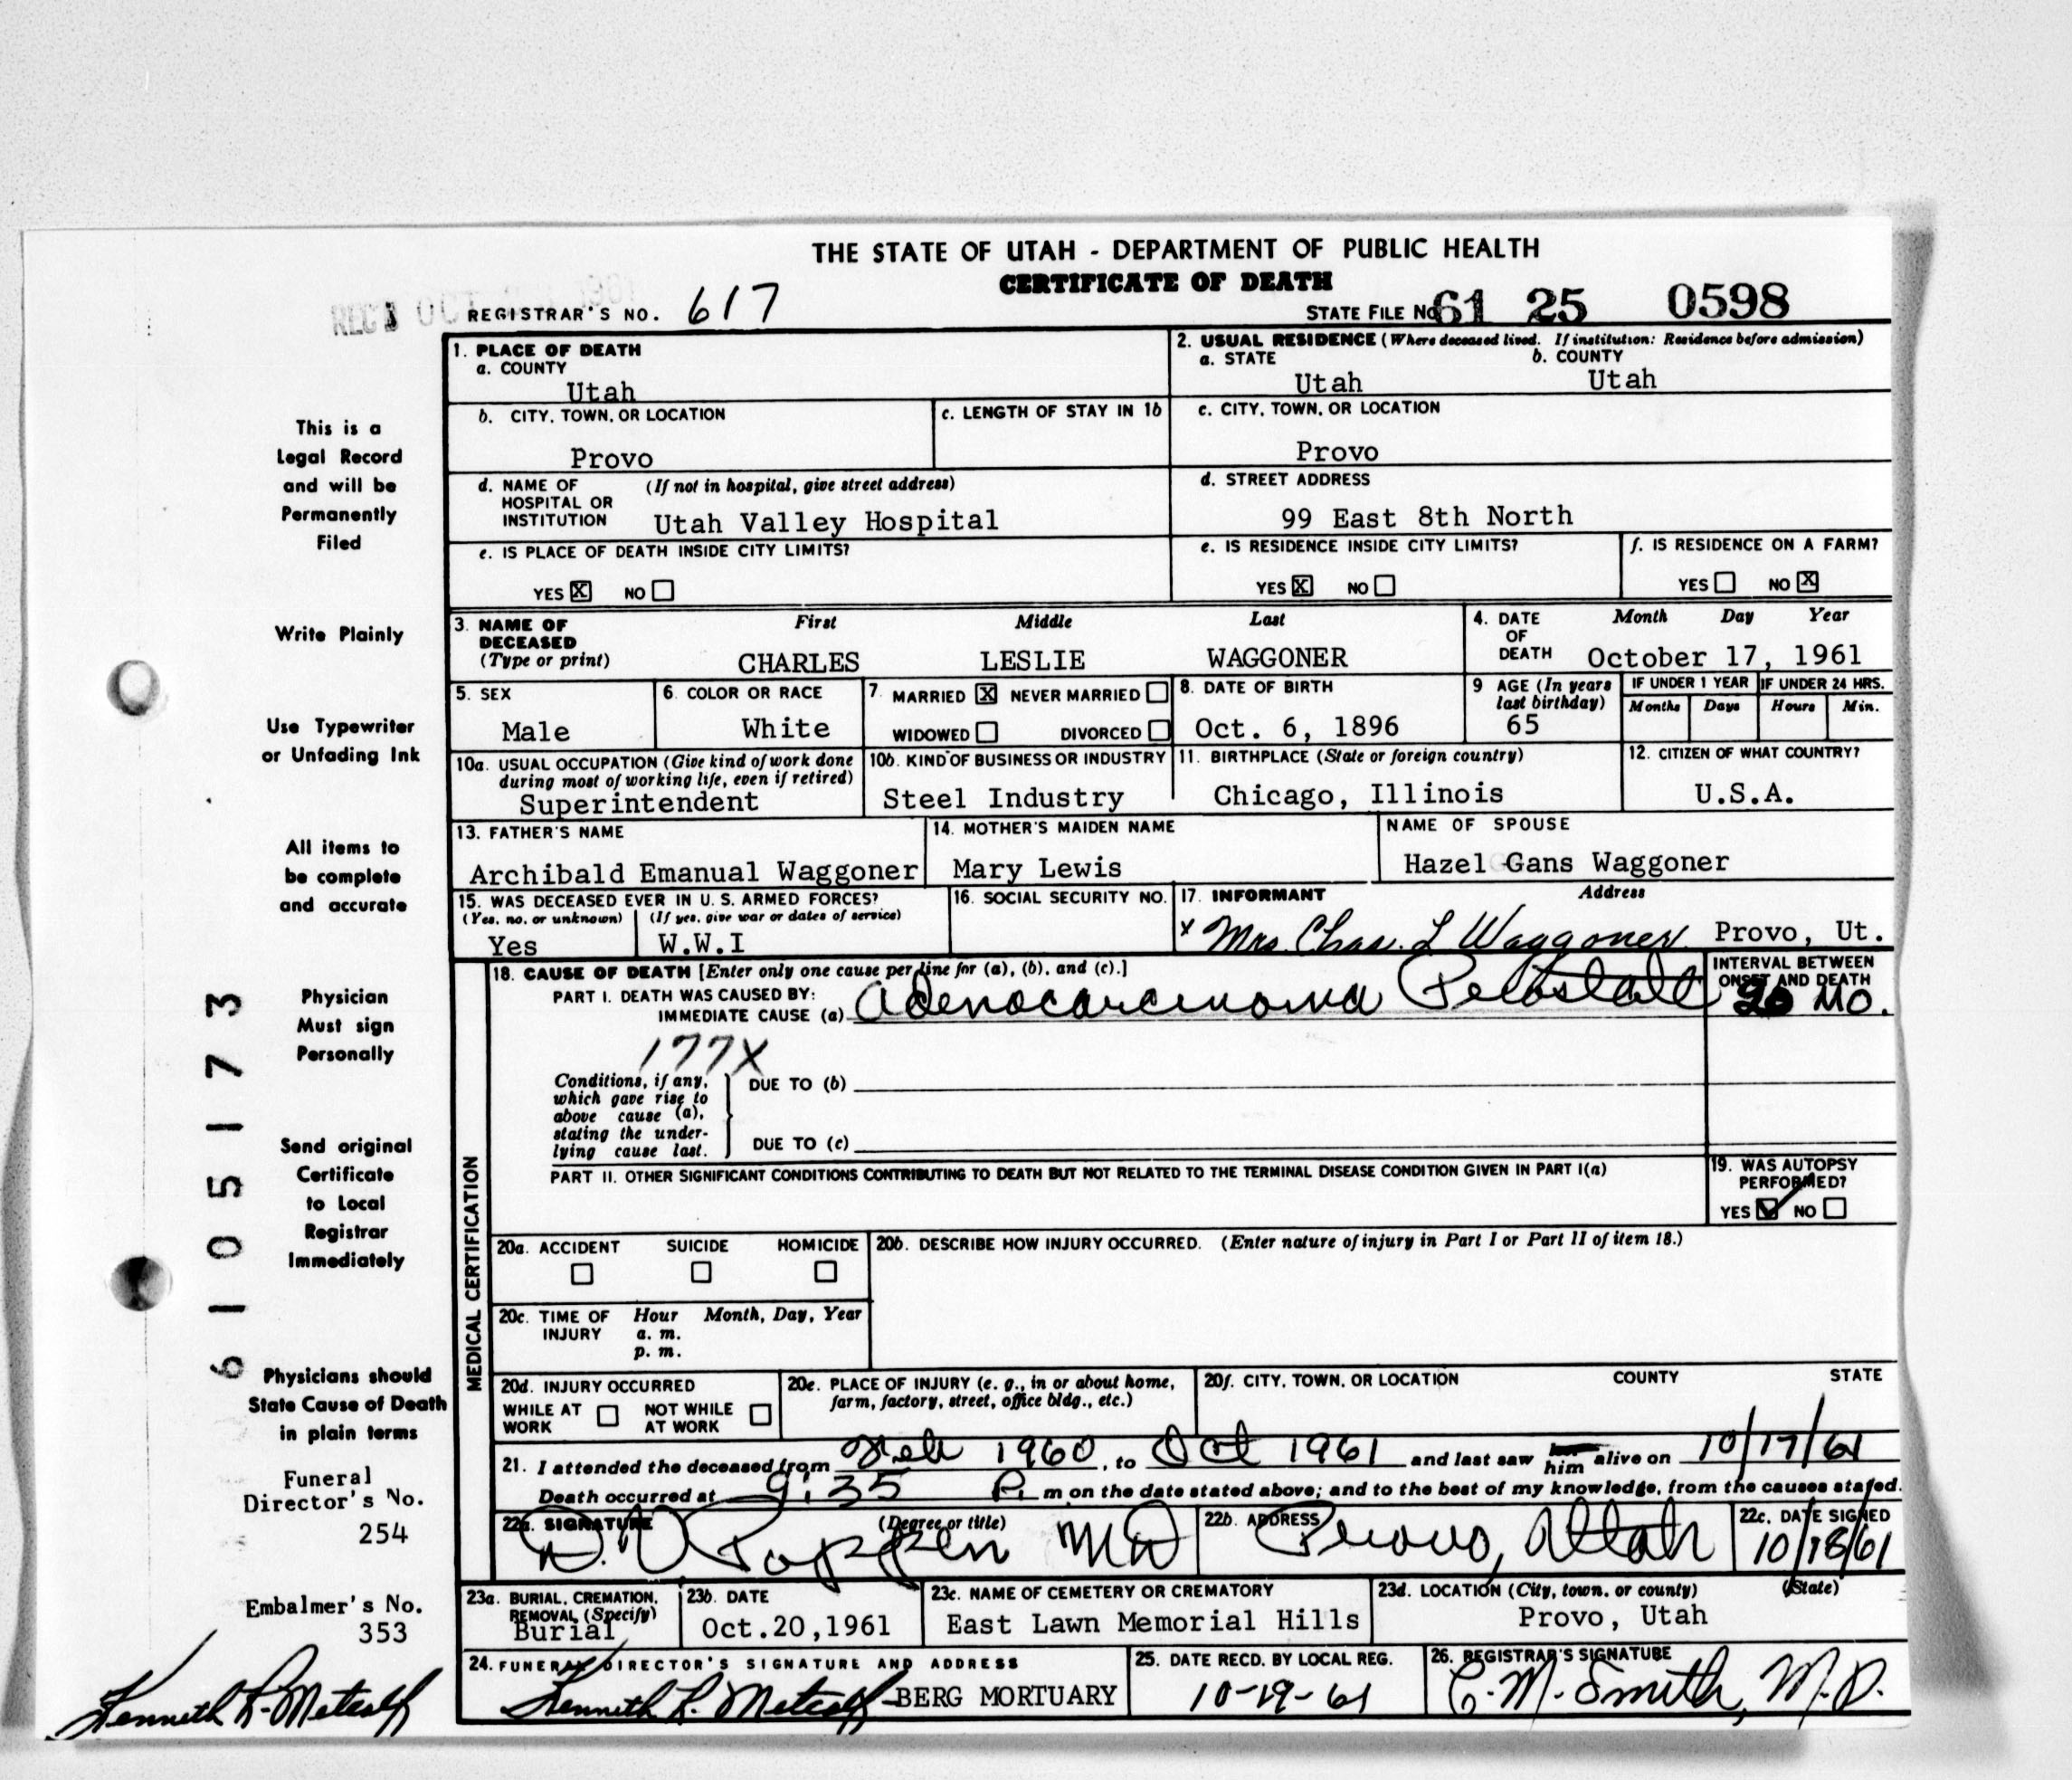 THE STATE OF UTAH - DEPARTMENT OF PUBLIC HEALTH
CERTIFICATE OF DEATH
REC'D OCT 1961
REGISTRAR'S NO. 617
STATE FILE NO. 61 25 0598
1. PLACE OF DEATH
a. COUNTY
Utah
2. USUAL RESIDENCE (Where deceased lived. If institution: Residence before admission)
a. STATE b. COUNTY
Utah Utah
b. CITY, TOWN, OR LOCATION
Provo
c. LENGTH OF STAY IN 1b
c. CITY, TOWN, OR LOCATION
Provo
d. NAME OF (If not in hospital, give street address)
HOSPITAL OR
INSTITUTION Utah Valley Hospital
d. STREET ADDRESS
99 East 8th North
e. IS PLACE OF DEATH INSIDE CITY LIMITS?
YES X NO
e. IS RESIDENCE INSIDE CITY LIMITS?
YES X NO
f. IS RESIDENCE ON A FARM?
YES NO X
3. NAME OF DECEASED (Type or print)
First Middle Last
CHARLES LESLIE WAGGONER
4. DATE OF DEATH
Month Day Year
October 17, 1961
5. SEX
Male
6. COLOR OR RACE
White
7. MARRIED X NEVER MARRIED
WIDOWED DIVORCED
8. DATE OF BIRTH
Oct. 6, 1896
9 AGE (In years last birthday)
65
IF UNDER 1 YEAR
Months Days
IF UNDER 24 HRS.
Hours Min.
10a. USUAL OCCUPATION (Give kind of work done
during most of working life, even if retired)
Superintendent
10b. KIND OF BUSINESS OR INDUSTRY
Steel Industry
11. BIRTHPLACE (State or foreign country)
Chicago, Illinois
12. CITIZEN OF WHAT COUNTRY?
U.S.A.
13. FATHER'S NAME
Archibald Emanual Waggoner
14. MOTHER'S MAIDEN NAME
Mary Lewis
NAME OF SPOUSE
Hazel Gans Waggoner
15. WAS DECEASED EVER IN U. S. ARMED FORCES?
(Yes, no, or unknown) (If yes, give war or dates of service)
Yes W.W.I
16. SOCIAL SECURITY NO.
17. INFORMANT Address
x Mrs. Chas. L Waggoner Provo, Ut.
MEDICAL CERTIFICATION
18. CAUSE OF DEATH [Enter only one cause per line for (a), (b), and (c).]
PART I. DEATH WAS CAUSED BY:
IMMEDIATE CAUSE (a) Adenocarcinoma
INTERVAL BETWEEN
ONSET AND DEATH
20 MO.
177X
Conditions, if any,
which gave rise to
above cause (a),
stating the under-
lying cause last.
DUE TO (b)
DUE TO (c)
PART II. OTHER SIGNIFICANT CONDITIONS CONTRIBUTING TO DEATH BUT NOT RELATED TO THE TERMINAL DISEASE CONDITION GIVEN IN PART I(a)
19. WAS AUTOPSY
PERFORMED?
YES NO
20a. ACCIDENT SUICIDE HOMICIDE
20b. DESCRIBE HOW INJURY OCCURRED. (Enter nature of injury in Part I or Part II of item 18.)
20c. TIME OF INJURY
Hour Month, Day, Year
a. m.
p. m.
20d. INJURY OCCURRED
WHILE AT WORK NOT WHILE AT WORK
20e. PLACE OF INJURY (e. g., in or about home,
farm, factory, street, office bldg., etc.)
20f. CITY, TOWN, OR LOCATION COUNTY STATE
21. I attended the deceased from Feb 1960, to Oct 1961 and last saw her him alive on 10/17/61
Death occurred at 9:35 P. m on the date stated above; and to the best of my knowledge, from the causes stated.
22a. SIGNATURE (Degree or title)
MD
22b. ADDRESS
Provo, Utah
22c. DATE SIGNED
10/18/61
23a. BURIAL, CREMATION,
REMOVAL (Specify)
Burial
23b. DATE
Oct.20,1961
23c. NAME OF CEMETERY OR CREMATORY
East Lawn Memorial Hills
23d. LOCATION (City, town, or county) (State)
Provo, Utah
24. FUNERAL DIRECTOR'S SIGNATURE AND ADDRESS
Kenneth L. Metcalf -BERG MORTUARY
25. DATE RECD. BY LOCAL REG.
10-19-61
26. REGISTRAR'S SIGNATURE
C. M. Smith, M.D.
This is a
Legal Record
and will be
Permanently
Filed
Write Plainly
Use Typewriter
or Unfading Ink
All items to
be complete
and accurate
Physician
Must sign
Personally
Send original
Certificate
to Local
Registrar
Immediately
Physicians should
State Cause of Death
in plain terms
Funeral
Director's No.
254
Embalmer's No.
353
Kenneth L. Metcalf
6105173